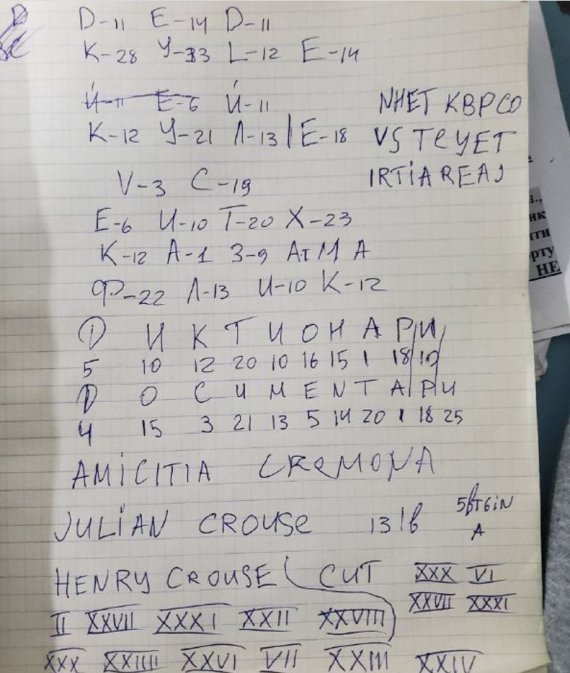 D-11 E-14 D-11
K-28 У-33 L-12 E-14
Й-11 E-6 Й-11
K-12 У-21 Л-13 | E-18
NHET KBPCO
VSTEYET
IRTIAREAJ
V-3 C-19
E-6 И-10 T-20 X-23
K-12 A-1 З-9 A M A
Ф-22 Л-13 И-10 K-12
D И К Т И О Н А Р И
5 10 12 20 10 16 15 1 18 10
D O C U M E N T A P И
4 15 3 21 13 5 14 20 1 18 25
AMICITIA CREMONA
JULIAN CROUSE 1316
A
HENRY CROUSE CUT XXX VI
XXVII XXXI
II XXVII XXXI XXII XXVIII
XXX XXIIII XXVI VII XXIII XXIV
як
ити
орту
НЕ